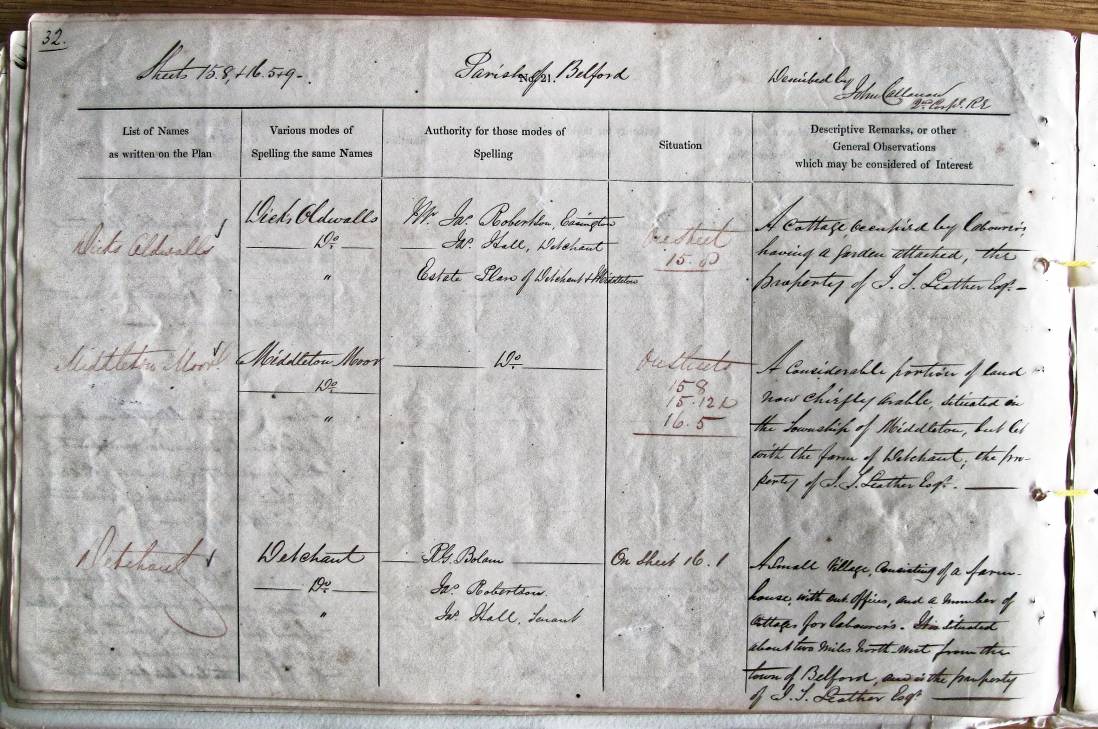 32.
Sheets 15.8 & 16.5 & 9 -
Parish of Belford
No. 21.
Described by
John Callanan
2nd Corpl. R.E
List of Names
as written on the Plan
Various modes of
Spelling the same Names
Authority for those modes of
Spelling
Situation
Descriptive Remarks, or other
General Observations
which may be considered of Interest
Dicks Oldwalls
Dicks Oldwalls
Do
"
Jas. Robertson, Easington
Jas. Hall, Detchant
Estate Plan of Detchant & Middleton
On Sheet
15.8
A Cottage occupied by labourers,
having a garden attached, the
property of J. T. Leather Esqr. -
Middleton Moor
Middleton Moor
Do
"
Do
On Sheets
15 8
15.12
16.5
A considerable portion of land
now chiefly arable, situated in
the Township of Middleton, but let
with the farm of Detchant, the pro-
perty of J. T. Leather Esqr. -
Detchant
Detchant
Do
"
R.G. Bolam
Jas. Robertson
Jas. Hall, Tenant
On Sheet 16.1
A Small Village, Consisting of a farm-
house, with out Offices, and a number of
Cottages for labourers. It is situated
about two miles North-West from the
town of Belford, and is the property
of J. T. Leather Esqr.